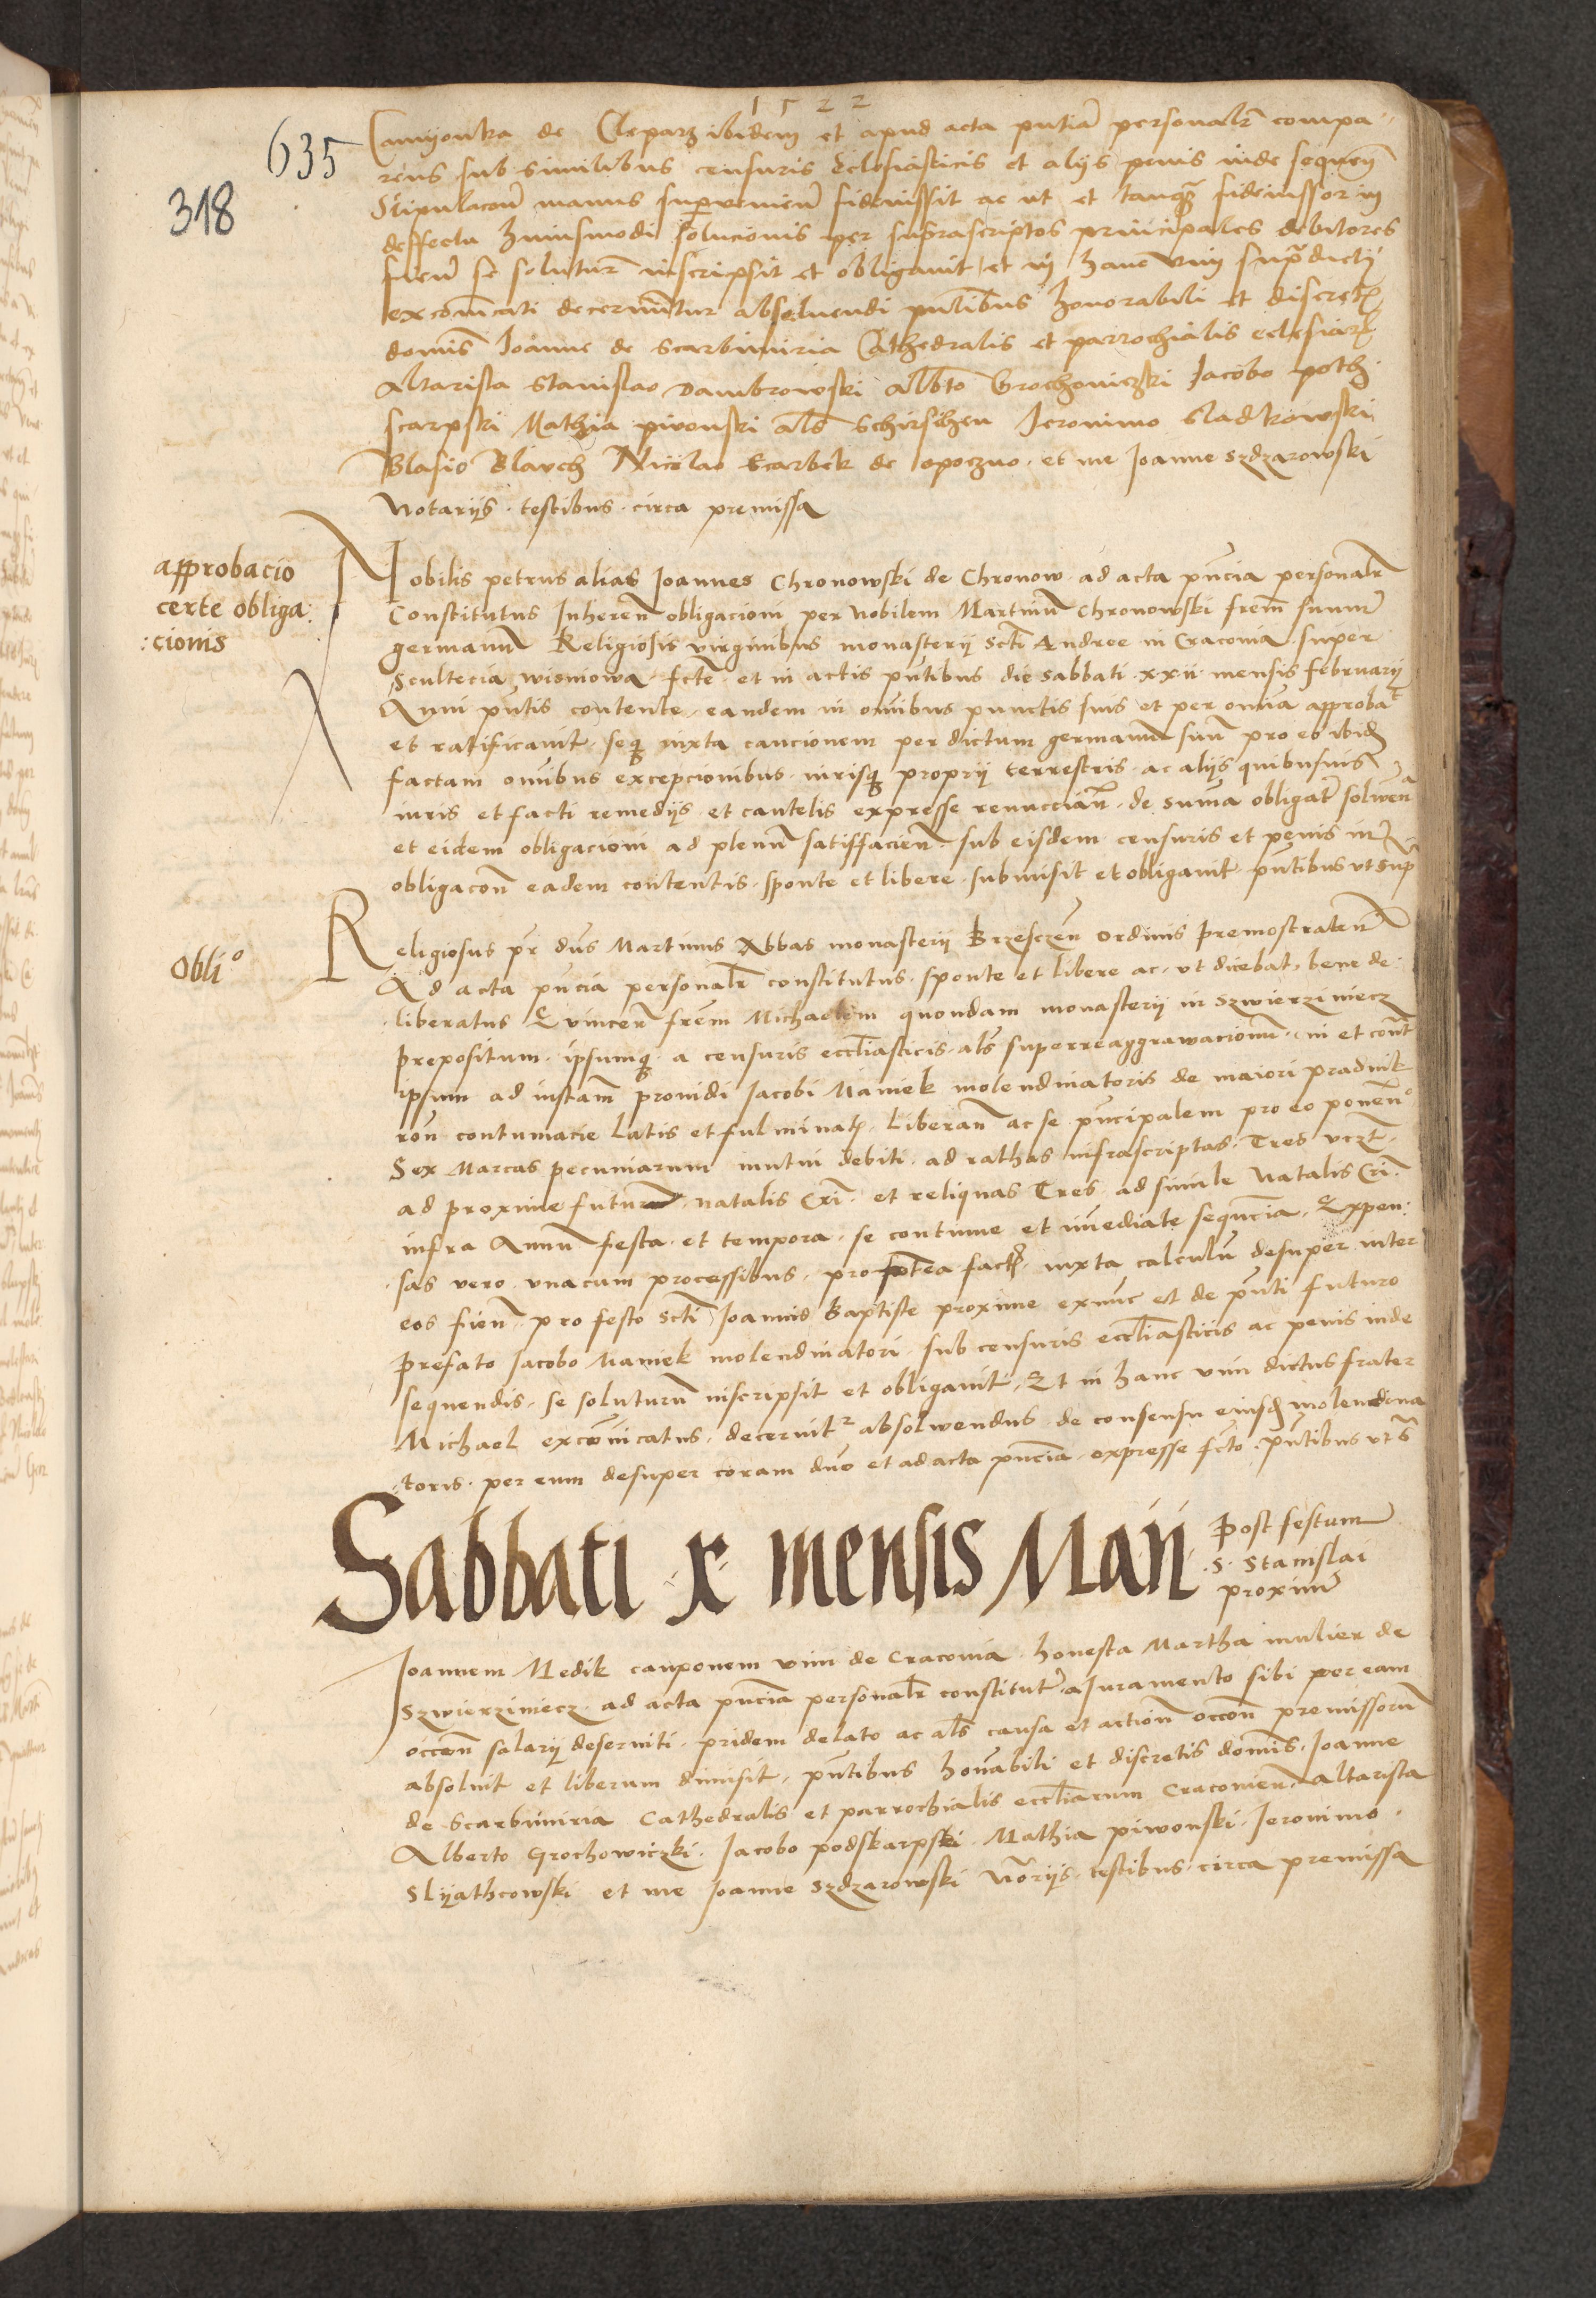 1522
635
318
Camyonka de Cleparz ibidem et apud acta pntia personalr compa
rens sub similibus censuris Eclesiasticis et alijs penis inde sequen
Stipulacon manus supervenien fideiussit ac ut et tanq fideiussor in
deffectu huiusmodi solucionis per suprascriptos principales debitores
fien se soluturu inscripsit et obligavit et in hanc vim supradicti
excomcati decernuntur absolvendi pntibus honorabili et discretis
domis Joanne de Scarbimiria Cathedralis et parrochialis eclesiar
Altarista Stanislao Dambrowski Albto Grochoviczki Jacobo poth
scarpski Mathia pivonski als Schirschen Jeronimo Sladkowski
Blasio Blauch Nicolao Scarbek de opoczno et me Joanne Szdzarowski
Notarijs testibus circa premissa
approbacio
certe obliga:
:cionis
Nobilis petrus alias Joannes Chronowski de Chronow ad acta pncia personalr
Constitutus Inheren obligacioni per Nobilem Martinu Chronowski frem suum
germanu Religiosis virginibus monasterij scti Andree in Cracovia super
Scultecia wisniowa fcte et in actis pntibus die sabbati xxij mensis februarij
Anni pntis contente eandem in omibus punctis suis et per omia approbat
et ratificavit seq iuxta caucionem per dictum germanu suu pro eo ibid
factam omibus excepcionibus iurisq proprij terrestris ac alijs quibusvis
iuris et facti remedijs et cautelis expresse renuccian de suma obligat solven
et eidem obligacioni ad plenu satisfacien sub eisdem censuris et penis in
obligacon eadem contentis sponte et libere submisit et obligavit pntibus ut sup
Oblio
Religiosus pr dus Martinus Abbas monasterij Brzesczen Ordinis premostraten
Ad acta pncia personalr constitutus sponte et libere ac ut dicebat bene de
liberatus Evincen frem Michaelem quondam monasterij in Szwierziniecz
prepositum ipsumq a censuris eccliasticis als superreaggravacionu in et cont
ipsum ad instam providi Jacobi Maniek molendinatoris de maiori pradnik
ron contumacie latis et fulminat Liberan ac se pncipalem pro eo ponen
Sex Marcas pecuniarum mutui debiti ad rathas infrascriptas Tres vczt
ad proxime futuru natalis Cri et reliquas Tres ad simile Natalis Cri
infra Annu festa et tempora se continue et imediate sequncia Expen:
sas vero unacum processibus propterea fact iuxta calculu desuper inter
eos fien pro festo scti Joannis Baptiste proxime exnunc et de pnti futuro
prefato Jacobo Maniek molendinatori sub censuris eccliasticis ac penis inde
sequendis se soluturu inscripsit et obligavit Et in hanc vim dictus frater
Michael excomicatus decernitr absolwendus de consensu eiusd molendina
toris per eum desuper coram dno et ad acta pncia expresse fcto pntibus ut s
Sabbati x mensis Maij
Post festum
S. Stanislai
proximu
Joannem Medik cauponem vini de Cracovia honesta Martha mulier de
Szwierziniecz ad acta pncia personalr constituta a Juramento sibi per eam
occon salarij deserviti pridem delato ac als causa et action occon premissoru
absolvit et liberum dimisit pntibus honabili et discretis domis Joanne
de Scarbimiria Cathedralis et parrochialis eccliarum Cracovien Altarista
Alberto Grochowiczki Jacobo podskarpski Mathia piwonski Jeronimo
Slyathcowski et me Joanne Szdzarowski Norijs testibus circa premissa